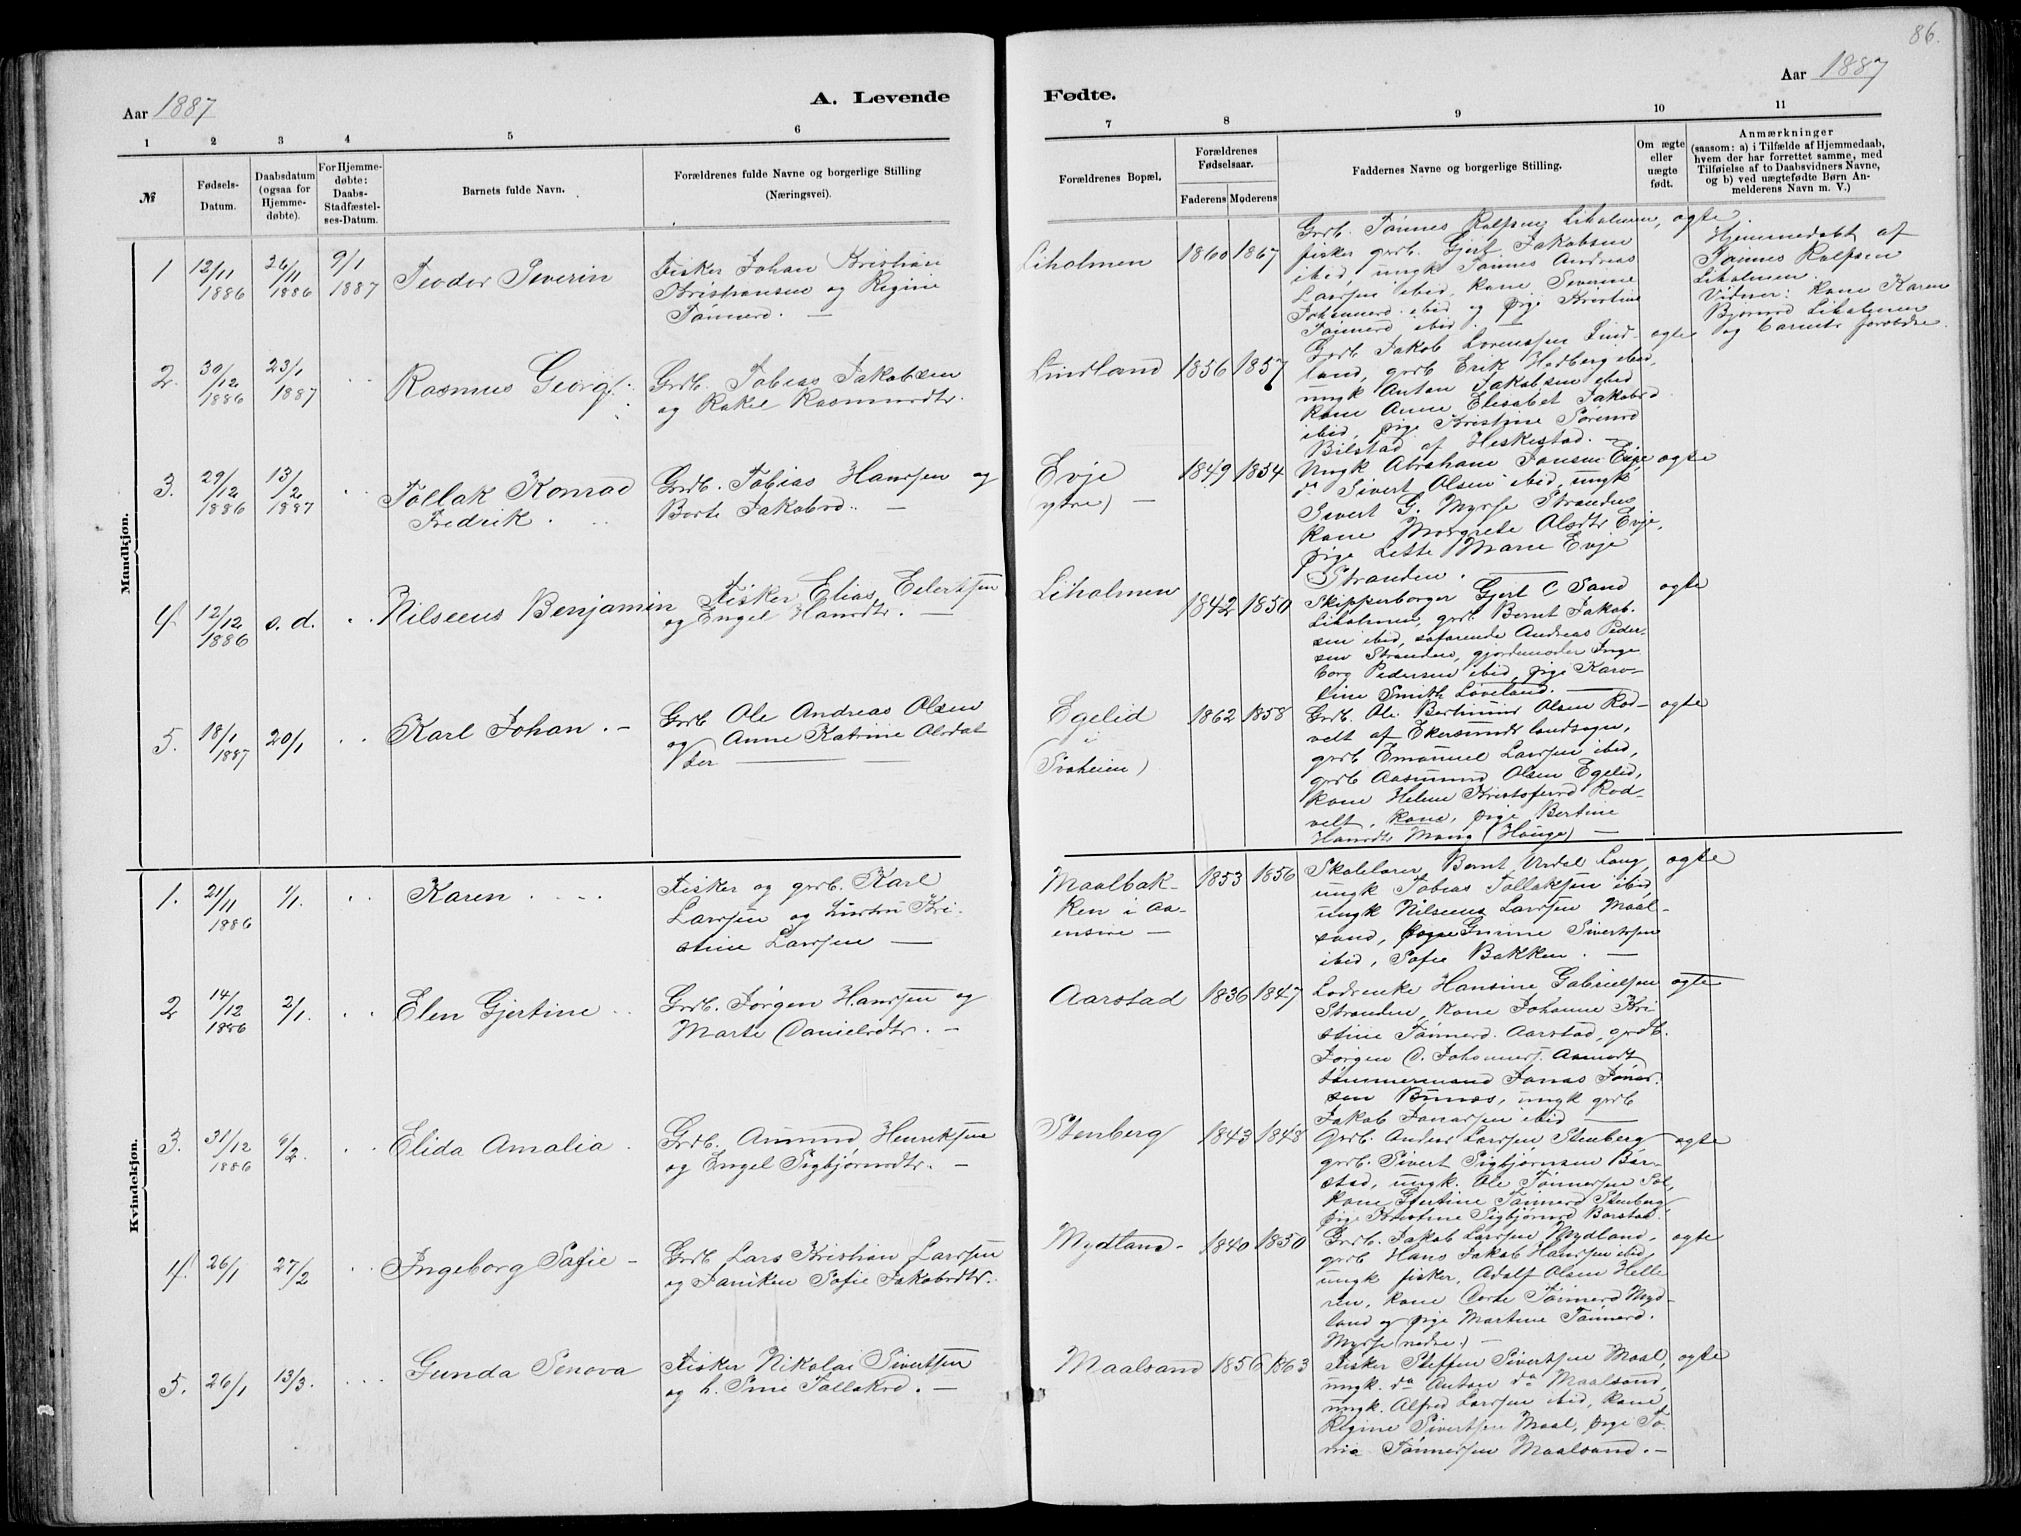 86.
Aar 1887
A. Levende
Fødte.
Aar 1887
1 2 3 4 5 6
7 8 9 10 11
№
Fødsels-
Datum.
Daabsdatum
(ogsaa for
Hjemme-
døbte).
For Hjemme-
døbte:
Daabs-
Stadfæstel-
ses-Datum.
Barnets fulde Navn.
Forældrenes fulde Navne og borgerlige Stilling
(Næringsvei).
Forældrenes Bopæl.
Forældrenes
Fødselsaar.
Faderens Moderens
Faddernes Navne og borgerlige Stilling.
Om ægte
eller
uægte
født.
Anmærkninger
(saasom: a) i Tilfælde af Hjemmedaab,
hvem der har forrettet samme, med
Tilføielse af to Daabsvidners Navne,
og b) ved uægtefødte Børn An-
melderens Navn m. V.)
Mandkjøn.
1 12/11 1886 26/11 1886 9/1 1887
Teodor Severin
Fisker Johan Kristian
Kristiansen og Regine
Tønnesd. —
Liholmen 1860 1867
Grdb. Tønnes Rolfsen Liholmen,
fisker grdb. Gjert Jakobsen
ibid, ungk Tønnes Andreas
Larssen ibid, kone Severine
Johannesd. ibid og pige Kristine
Tønnesd. ibid. —
ægte
Hjemmedøbt af
Tønnes Rolfsen
Liholmen.
Vidner: kone Karen
Bjørnsd Liholmen
og barnets forældre.
2. 30/12 1886 23/1 1887
Rasmus Georg
Grdb. Tobias Jakobsen
og Rakel Rasmusdtr.
Lindland 1856 1857
Grdb. Jakob Lorenssen Lind-
land, grdb Erik Hedberg ibid,
ungk Anton Jakobsen ibid
kone Anne Elisabet Jakobsd
ibid, pige Kristine Sørensd
Bilstad af Heskestad. —
ægte
3. 29/12 1886 13/2 1887
Tollak Konrad
Fredrik.
Grdb. Tobias Hanssen og
Berte Jakobsd. —
Evje
(ytre) —
1849 1854
Ungk Abraham Jansen Evje
do Sivert Olsen ibid, ungk
Sivert G. Myrse Stranden
kone Margrete Olsdtr Evje,
pige Lette Marie Evje
Stranden. —
ægte
4. 12/12 1886 s. d.
Nilseeus Benjamin
Fisker Elias Eilertsen
og Engel Hansdtr. —
Liholmen 1842 1850
Skipperborger Gjert C Sand
Liholmen, grdb. Bernt Jakob-
sen ibid, søfarende Andreas Peder-
sen Stranden, gjordemoder Inge
borg Pedersen ibid, pige Karo-
line Smith Løveland. —
ægte
5. 18/1 1887 20/1
Karl Johan. —
Grdb Ole Andreas Olsen
og Anne Katrine Olsdat
ter —
Egelid
i
(Svaheien)
1862 1858
Grdb. Ole Bertinius Olsen Rod-
velt af Ekersunds landsogn,
grdb Emanuel Larssen ibid,
grdb Aasmund Olsen Egelid,
kone Helene Kristofersd Rod-
velt, kone, pige Bertine
Hansdtr Mong (Hauge) —
ægte
Kvindekjøn.
1. 21/11 1886 1/1.
Karen
Fisker og grdb. Karl
Larssen og hustru Kri-
stine Larssen —
Maalbak-
ken i Aa-
ensire —
1853 1856
Skolelærer Bernt Urdal Log,
ungk Tobias Tollaksen ibid,
ungk Nilseeus Larssen Maal-
sand, pigene Gurine Sivertsen
ibid, Sofie Bakken. —
ægte
2 14/12 1886 2/1.
Elen Gjertine
Grdb. Jørgen Hanssen og
Marte Danielsdtr. —
Aarstad 1836 1847
Lodsenke Hansine Gabrielsen
Stranden, kone Johanne Kri
stine Tønnesd. Aarstad, grdb.
Jørgen C. Johanness. Aamodt
tømmermand Jonas Jonas-
sen Bunes, ungk grdb
Jakob Jonassen ibid —
ægte
3. 31/12 1886 6/2.
Elida Amalia
Grdb. Amund Henriksen
og Engel Sigbjørnsdtr. —
Stenberg 1843 1848
Grdb. Anders Larssen Stenberg
grdb. Sivert Sigbjørnsen Bar-
stad, ungk. Ole Tønnessen Sæl,
kone Gjertine Tønnesd Stenberg
pige Kristine Sigbjørnsd Barstad.
ægte
4. 26/1 27/2
Ingeborg Sofie —
Grdb Lars Kristian Larssen
og Janiken Sofie Jakobsdtr.
Mydland. 1840 1850
Grdb. Jakob Larssen Mydland,
grdb Hans Jakob Hanssen ibid,
ungk fisker, Adolf Olsen Helle
ren, kone Dorte Tønnesd Myd-
land og pige Martine Tønnesd.
Myrse (nedre) —
ægte
5. 26/1 13/3.
Gunda Senova
Fisker Nikolai Sivertsen
og h. Sine Tollaksd. —
Maalsand 1856 1863
Fisker Steffen Sivertsen Maal,
ungk. do Anton do Maalsand,
ungk. Alfred Larssen ibid, kone
Regine Sivertsen Maal, pige To-
nia Tønnessen Maalsand. —
ægte